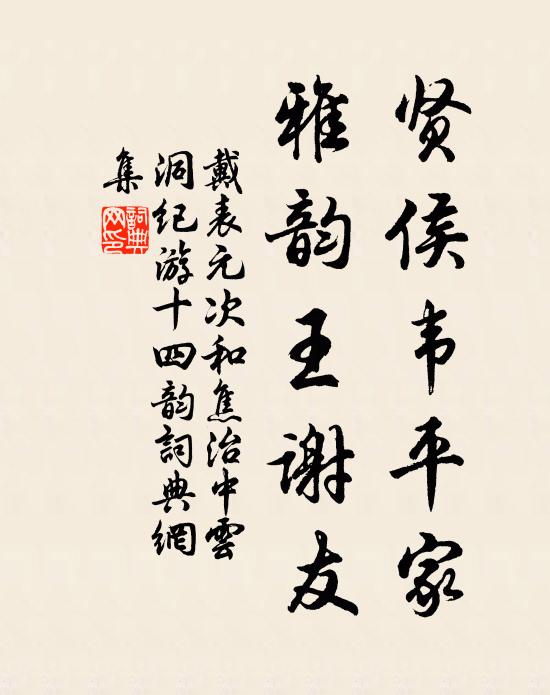 贤侯韦平家
雅韵王谢友
戴表元次和焦治中雲
洞纪游十四韵詞典網
集
詞典網印